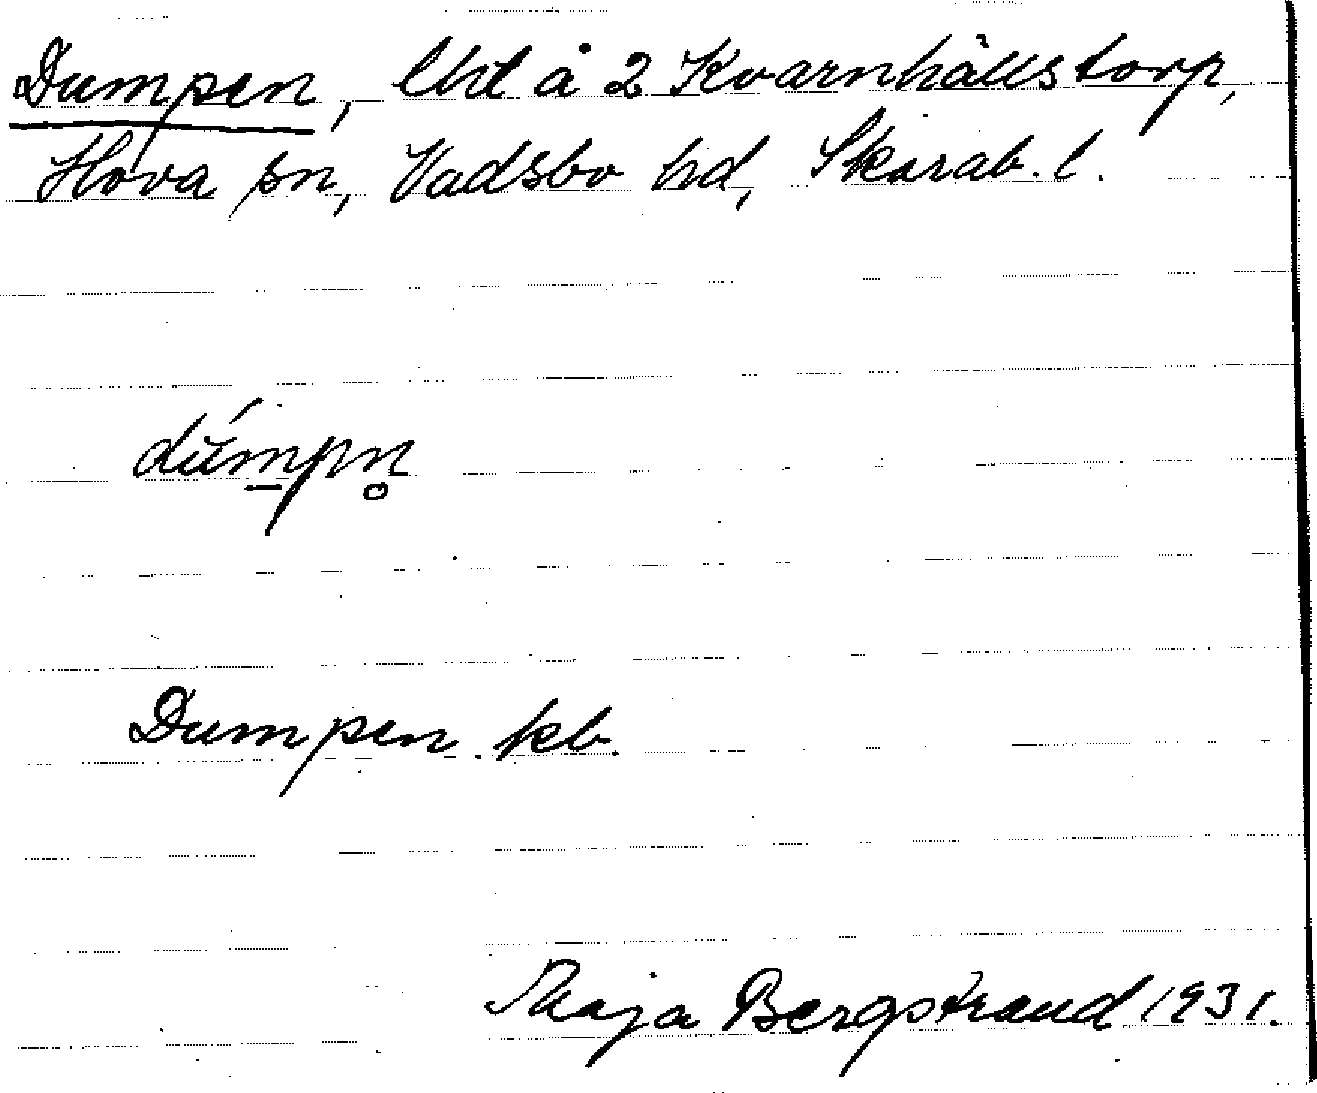 Dumpen, lht å 2 Kvarnhällstorp,
Hova sn, Vadsbo hd, Skarab. l.
dúmpn̥
Dumpen kb.
Maja Bergstrand 1931.